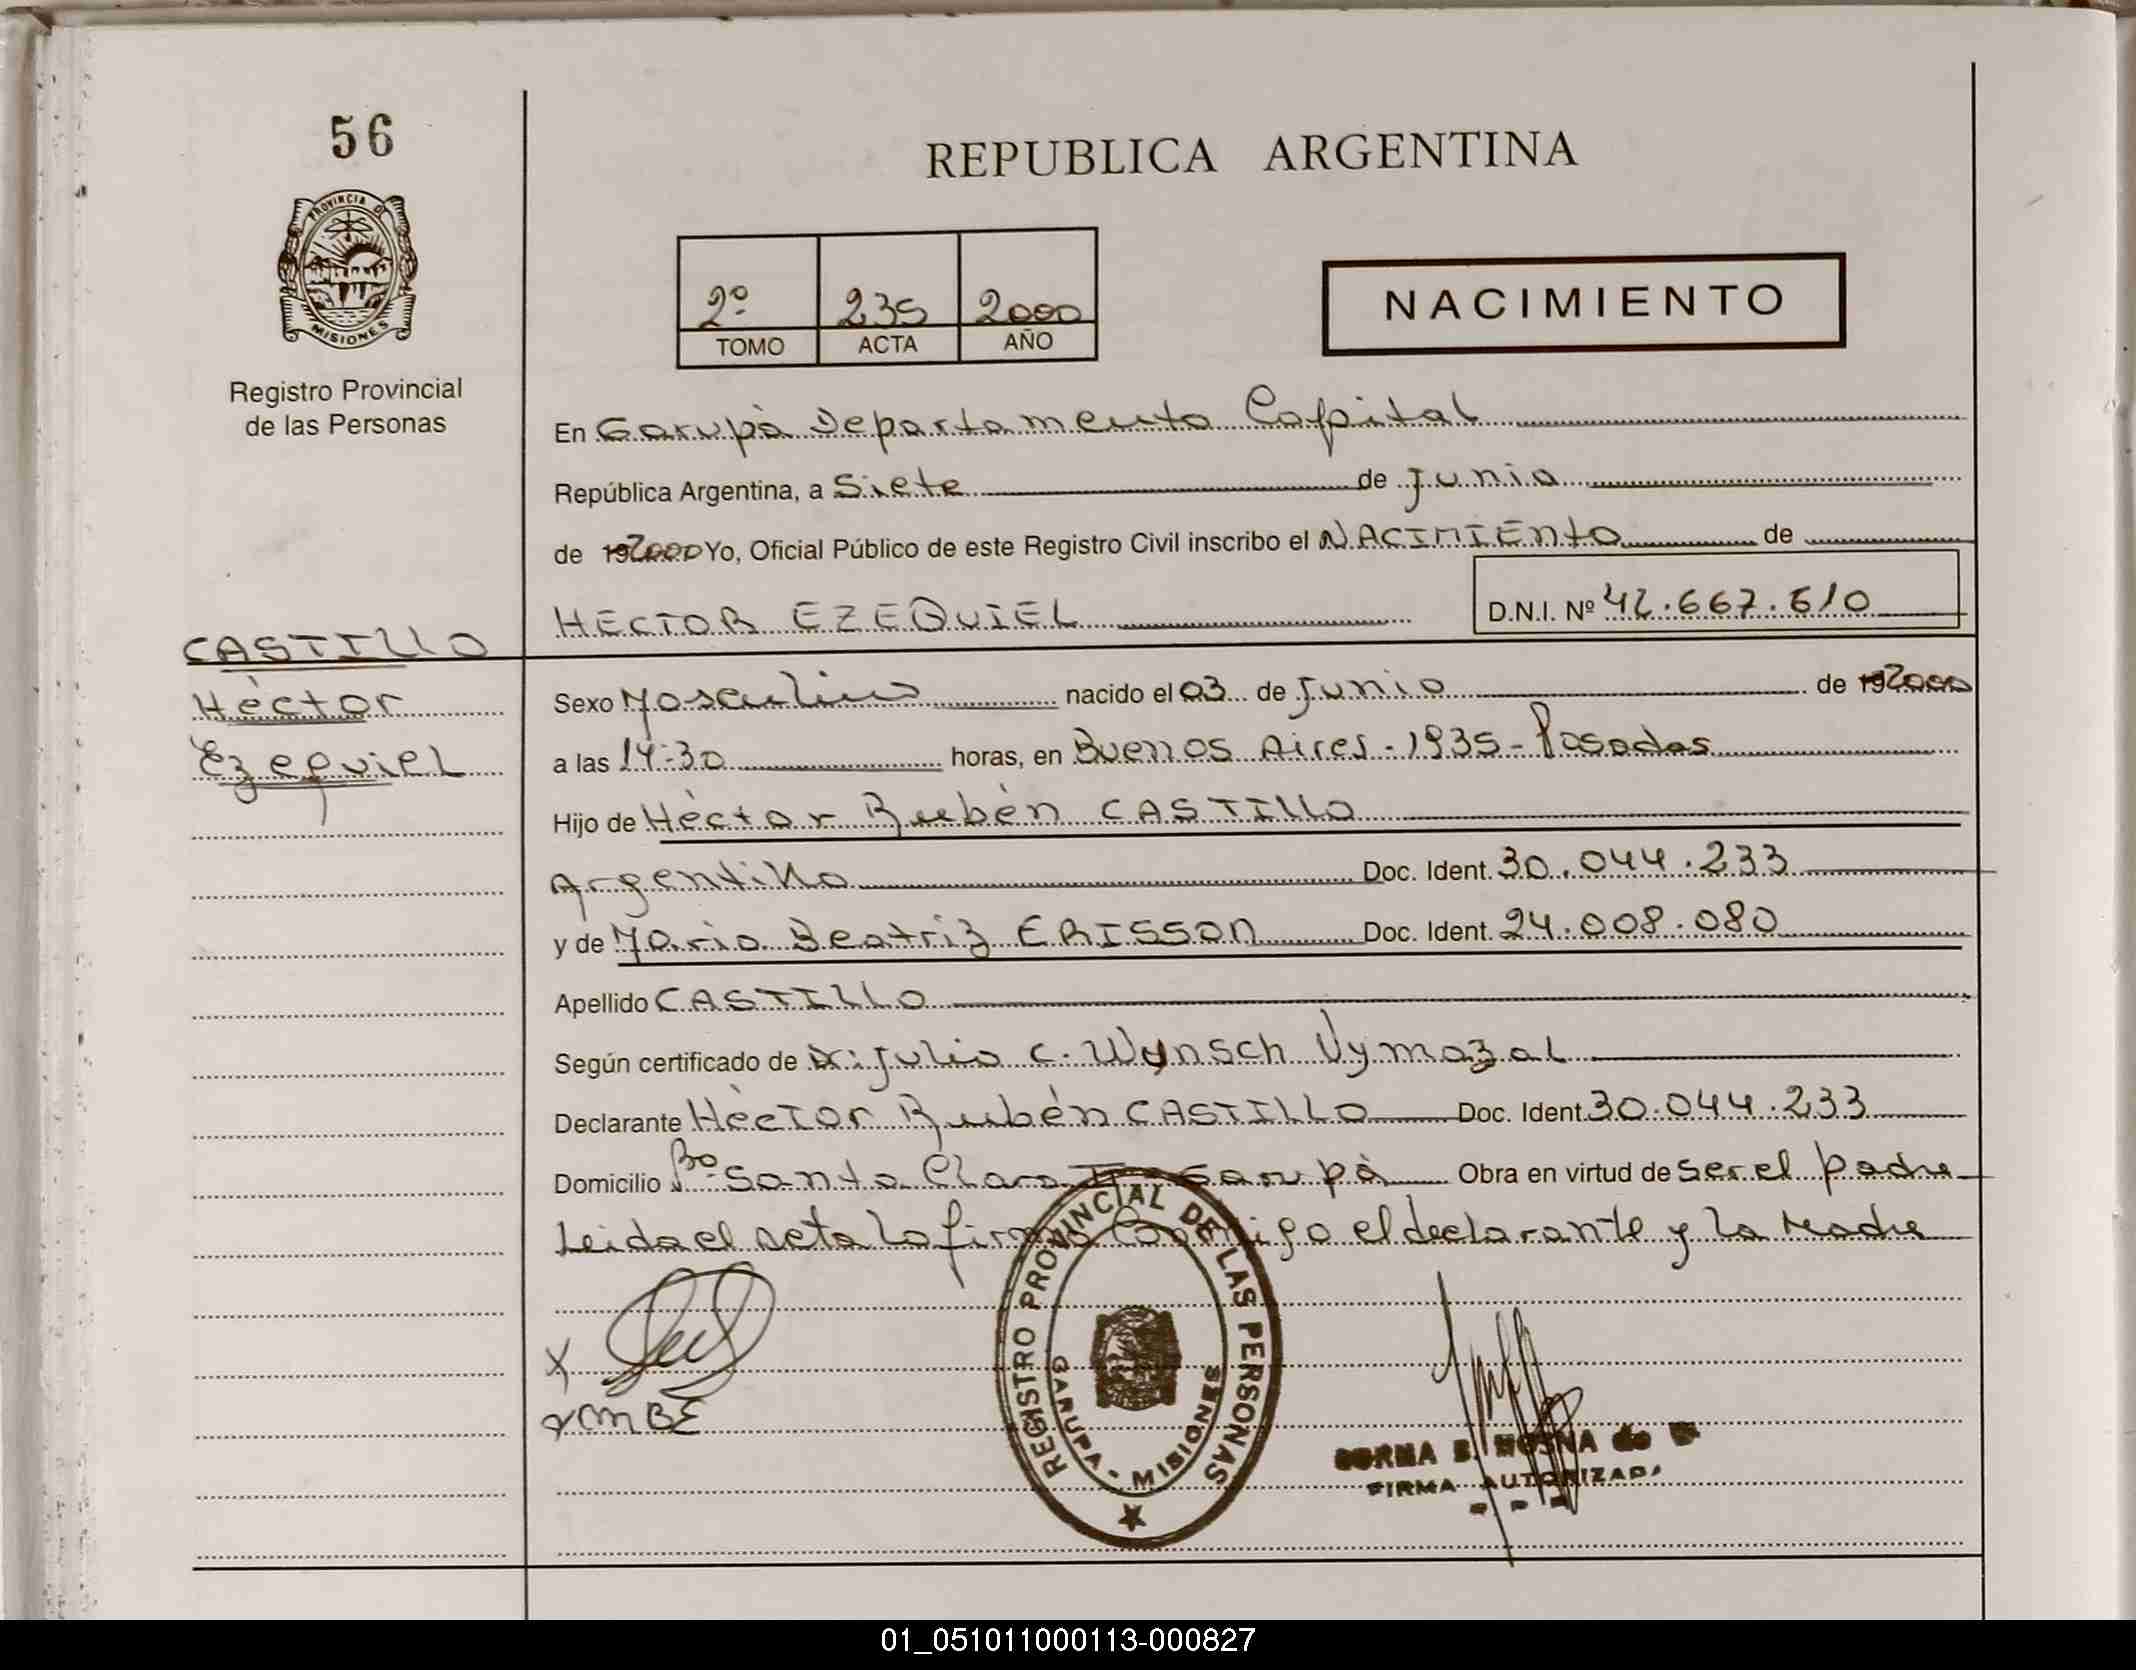 56
PROVINCIA D
MISIONES
Registro Provincial
de las Personas
REPUBLICA ARGENTINA
2º 235 2000
TOMO ACTA AÑO
NACIMIENTO
En Garupà Departamento Capital
República Argentina, a Siete de Junio
de 192000 Yo, Oficial Público de este Registro Civil inscribo el NACIMIENTO de
HECTOR EZEQUIEL D.N.I. Nº 42.667.610
CASTILLO
Hèctor
Ezequiel
Sexo Masculino nacido el 03 de Junio de 192000
a las 14:30 horas, en Buenos Aires - 1935 - Posadas
Hijo de Hèctor Rubèn CASTILLO
Argentino Doc. Ident. 30.044.233
y de Maria Beatriz ERISSON Doc. Ident. 24.008.080
Apellido CASTILLO
Según certificado de Dr. Julio C. Wynsch Vymazal
Declarante Hècton Rubén CASTILLO Doc. Ident. 30.044.233
Domicilio Bo. Santa Clara II - Garupà Obra en virtud de ser el padre
Leida el acta la firma Conmigo el declarante y la Madre
X
x MBE
REGISTRO PROVINCIAL DE LAS PERSONAS
GARUPA - MISIONES
NORMA B. MOSNA de
FIRMA AUTORIZADA
01_051011000113-000827